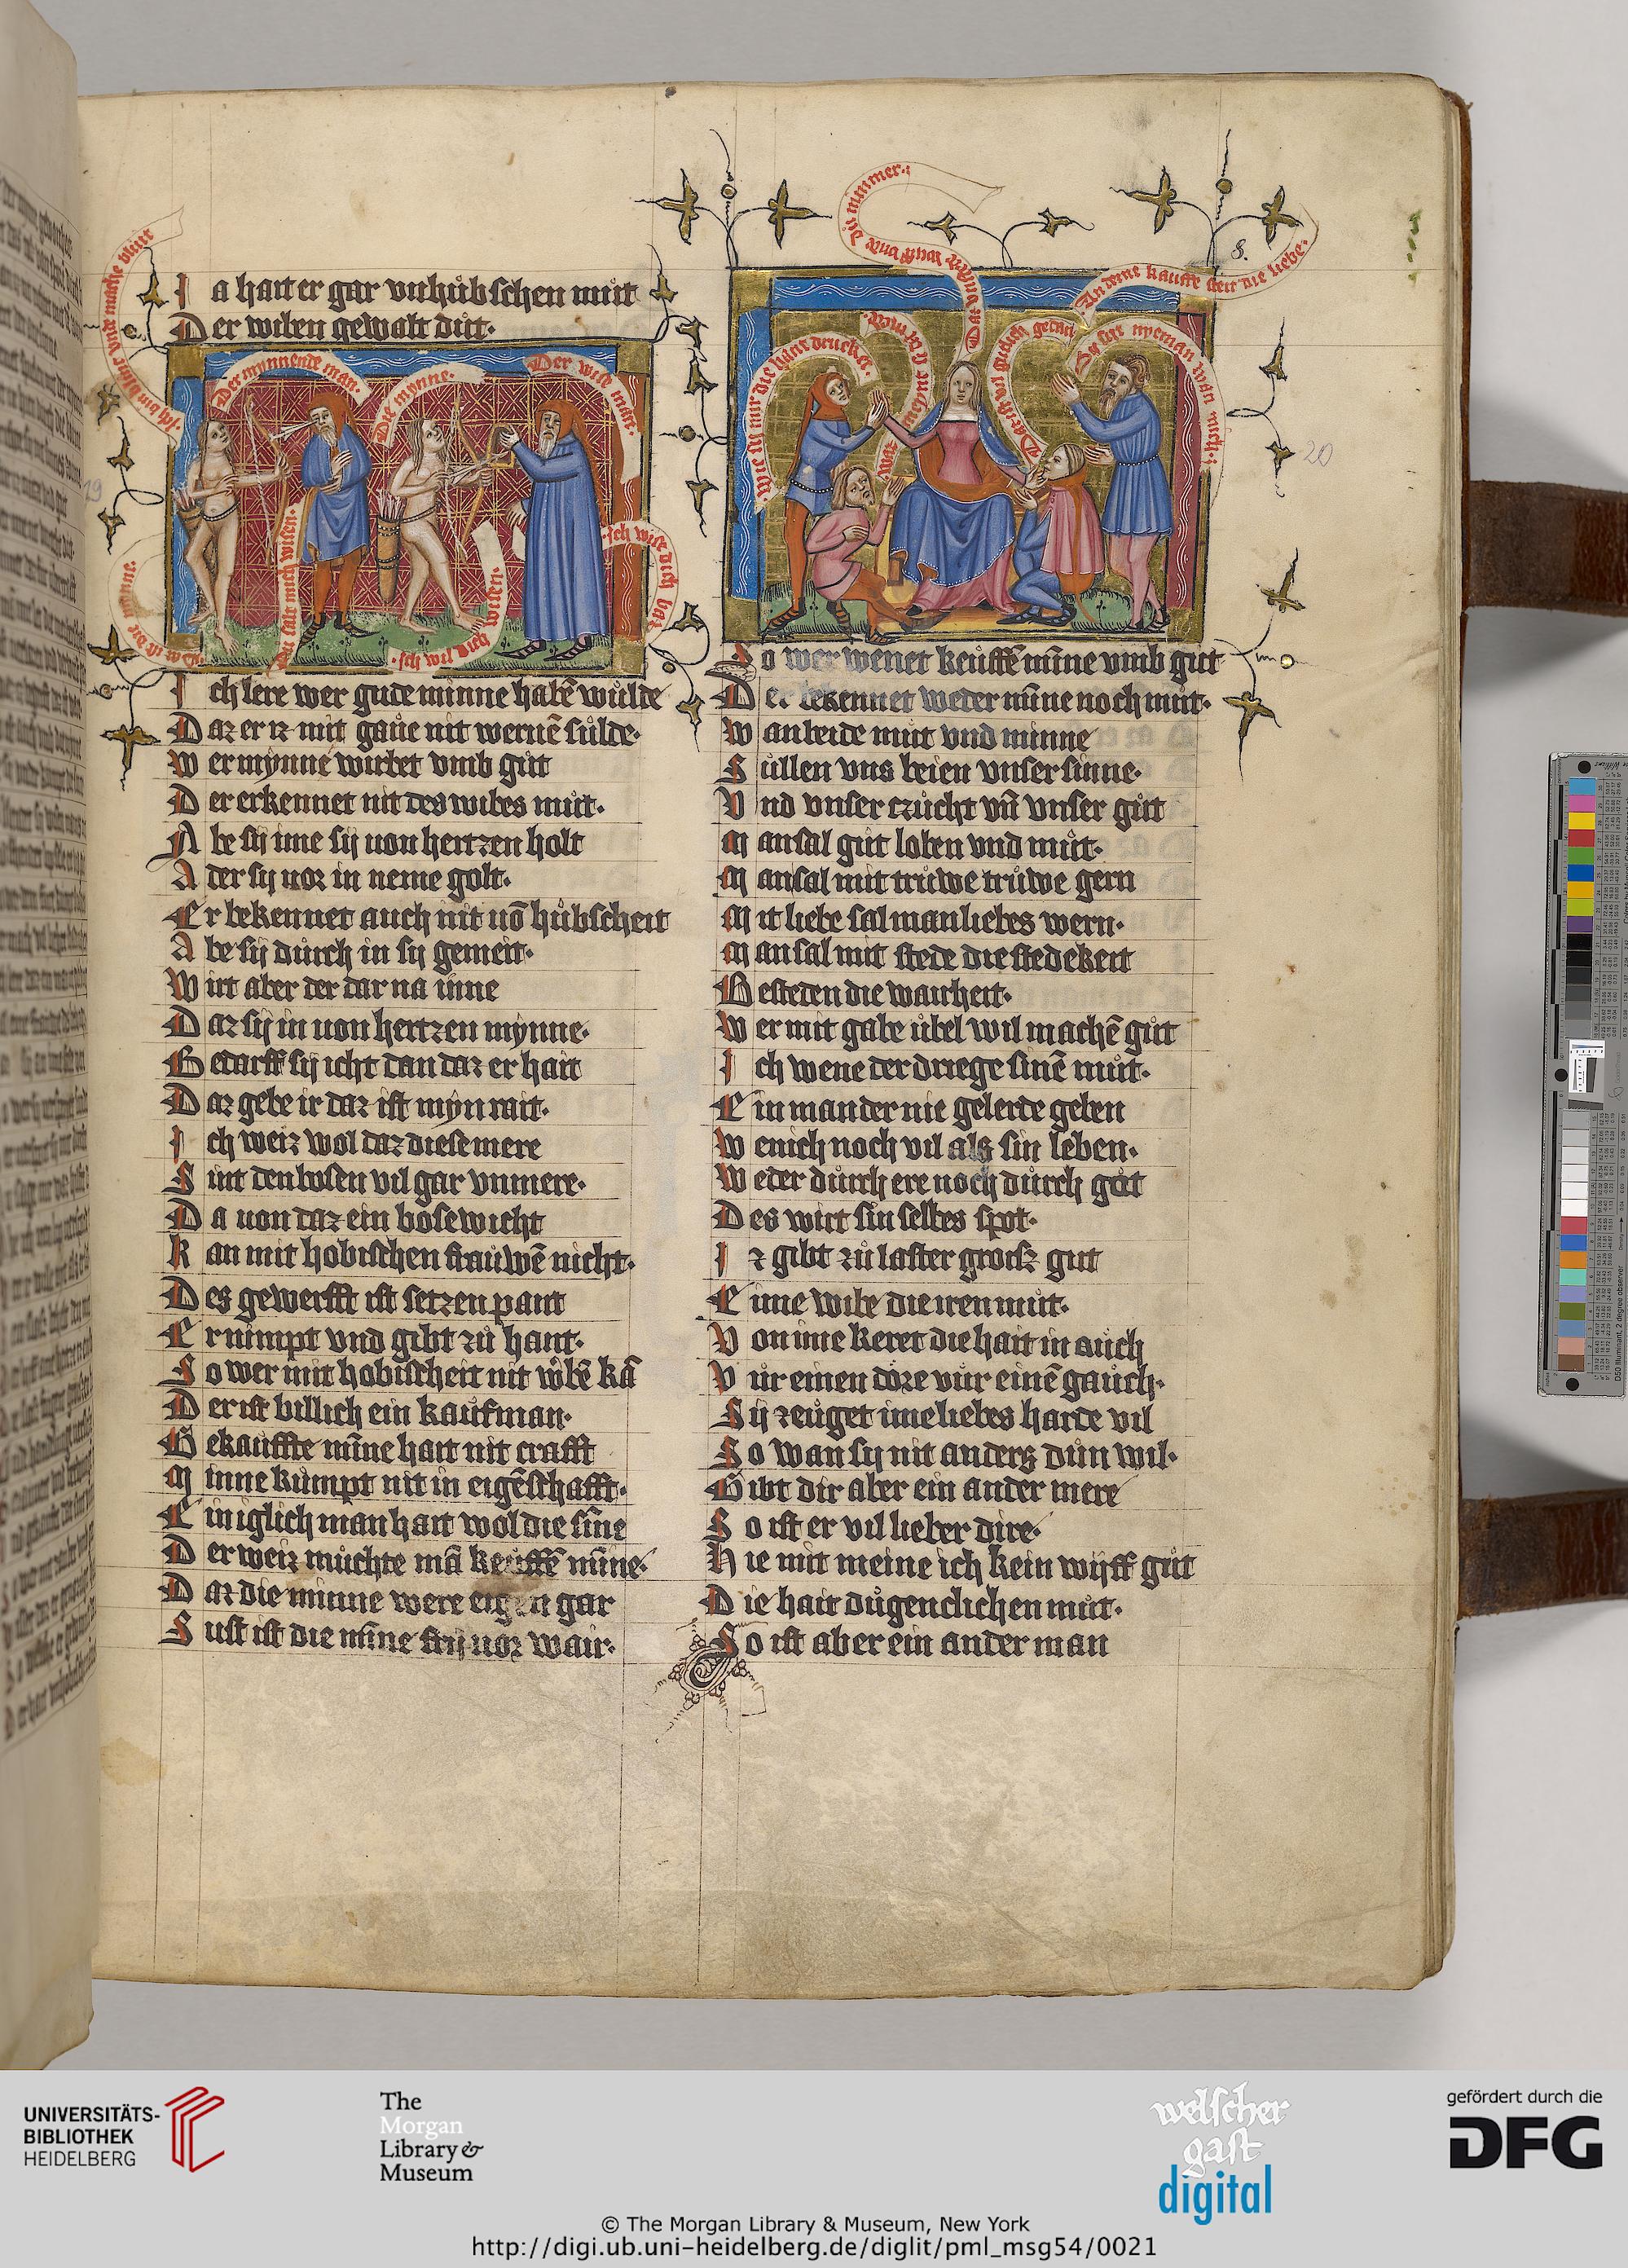 I a hait er gar vnhůbschen můt
Der wilen gewalt důt·
ich bin blint vnd mache blint
Der mynnende man·
Die mynne·
Der wise man·
Daz ist die minne·
Du salt mich wisen·
Ich wil dich wisen·
Ich wise dich baz
I ch lere wer gude minne habē wůlde
D az er iz mit gaůe nit wernē sůlde·
W er mÿnne wirbet vmb gůt
D er erkennet nit des wibes můt·
A be sij ime sij uon hertzen holt
A der sij uor in neme golt·
E r bekennet auch nit uō hůbscheit
A be sij důrch in sij gemeit·
W irt aber der dar na inne
D az sij in uon hertzen mynne·
B edarff sij icht dan daz er hait
D az gebe ir daz ist mÿn rait·
I ch weiz wol daz diese mere
S int den bosen vil gar vnmere·
D a uon daz ein bosewicht
K an mit hobischen fraůwē nicht·
D es gewerfft ist setzen pant
E r nimpt vnd gibt zů hant·
S o wer mit hobischeit nit w̓bē kā
D er ist billich ein kaůfman·
G ekauffte mīne hait nit crafft
M inne kůmpt nit in eigēschafft·
E iniglich man hait wol die sīne
D er weiz můchte mā keůffē mīne·
D az die minne were eigen gar
S ust ist die mīne frij uor wair·
Daz enger wirt vmb dir nimmer·
8·
An deme kauffe steit die liebe·
wie sij mir die hant drucket·
war meynt sy mich
Da sihet nyeman wan mich·
20
S o wer wenet keůffē mīne vmb gůt
D er bekennet weder mīne noch můt·
W an beide můt vnd minne
S ůllen vns beien vnser sinne·
V nd vnser czůcht vn̄ vnser gůt
M an sal gůt loben vnd můt·
M an sal mit trůwe trůwe gern
M it liebe sal man liebes wern·
M an sal mit stede die stedekeit
B esteden die wairheit·
W er mit gabe ůbel wil machē gůt
I ch wene der driege sinē můt·
E in man der nie gelerte geben
W enich noch vil als sin leben·
W eder důrch ere noch důrch got
D es wirt sin selbes spot·
I z gibt zů laster grosz gut
E ime wibe die iren můt·
V on ime keret die hait in auch
V ůr einen dore vůr einē gaůch·
S ij zeůget ime liebes harte vil
S o wan sij nit anders důn wil·
G ibt dir aber ein ander mere
S o ist er vil lieber dire·
H ie mit meine ich kein wijff gůt
D ie hait důgenclichen můt·
S o ist aber ein ander man
UNIVERSITÄTS-
BIBLIOTHEK
HEIDELBERG
The
Morgan
Library &
Museum
welscher
gast
digital
gefördert durch die
DFG
© The Morgan Library & Museum, New York
http://digi.ub.uni-heidelberg.de/diglit/pml_msg54/0021